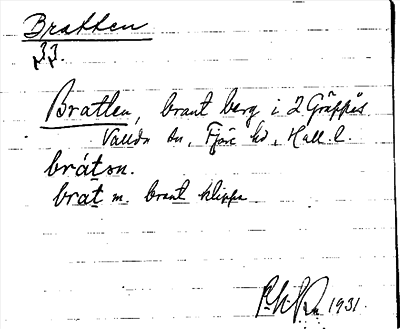 Bratten
33.
Bratten, brant berg i 2 Gräppås
Vallda sn, Fjäre hd, Hall. l.
bràtən.
brat m. brant klippa
1931.